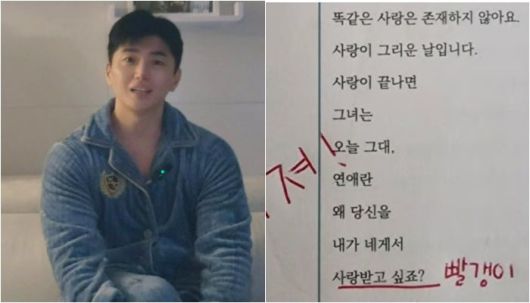 똑같은 사랑은 존재하지 않아요.
사랑이 그리운 날입니다.
사랑이 끝나면
그녀는
오늘 그대,
져!
연애란
왜 당신을
내가 네게서
사랑받고 싶죠? 빨갱이